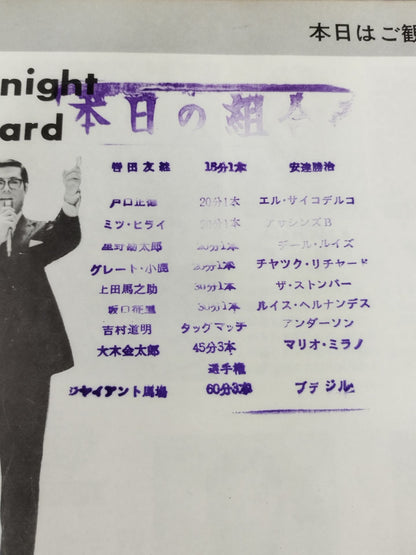 本日はご観
night
ard
本日の組合せ
曽田友継 15分1本 安達勝治
戸口正徳 20分1本 エル・サイコデルコ
ミツ・ヒライ 20分1本 アサシンズB
星野勘太郎 20分1本 デール・ルイズ
グレート・小鹿 20分1本 チヤツク・リチャード
上田馬之助 30分1本 ザ・ストンパー
坂口征二 30分1本 ルイス・ヘルナンデス
吉村道明 タッグマッチ アンダーソン
大木金太郎 45分3本 マリオ・ミラノ
選手権
ジヤイアント馬場 60分3本 ブラジル